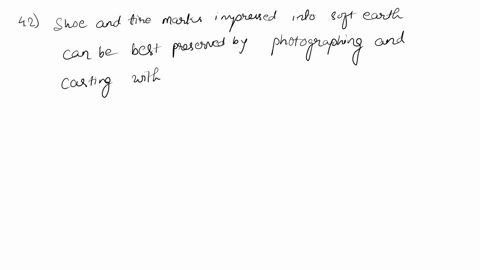 42) Shoe and tire marks impressed into soft earth
can be best preserved by photographing and
casting with